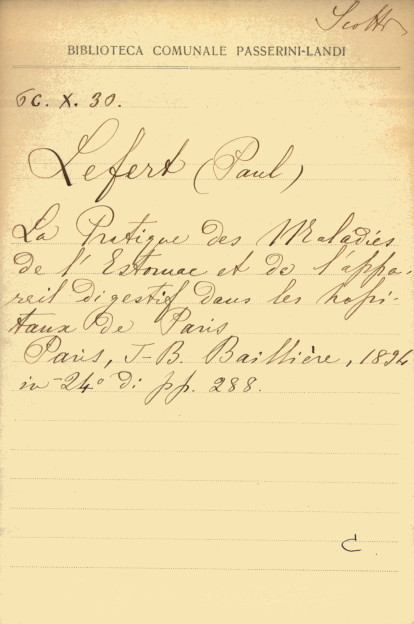 Scotti
BIBLIOTECA COMUNALE PASSERINI-LANDI
6C. X. 30.
Lefert (Paul)
La Pratique des Maladies
de l'Estomac et de l'appa-
reil digestif dans les hopi-
taux de Paris
Paris, J-B. Baillière, 1894
in-24° di pp. 288.
C